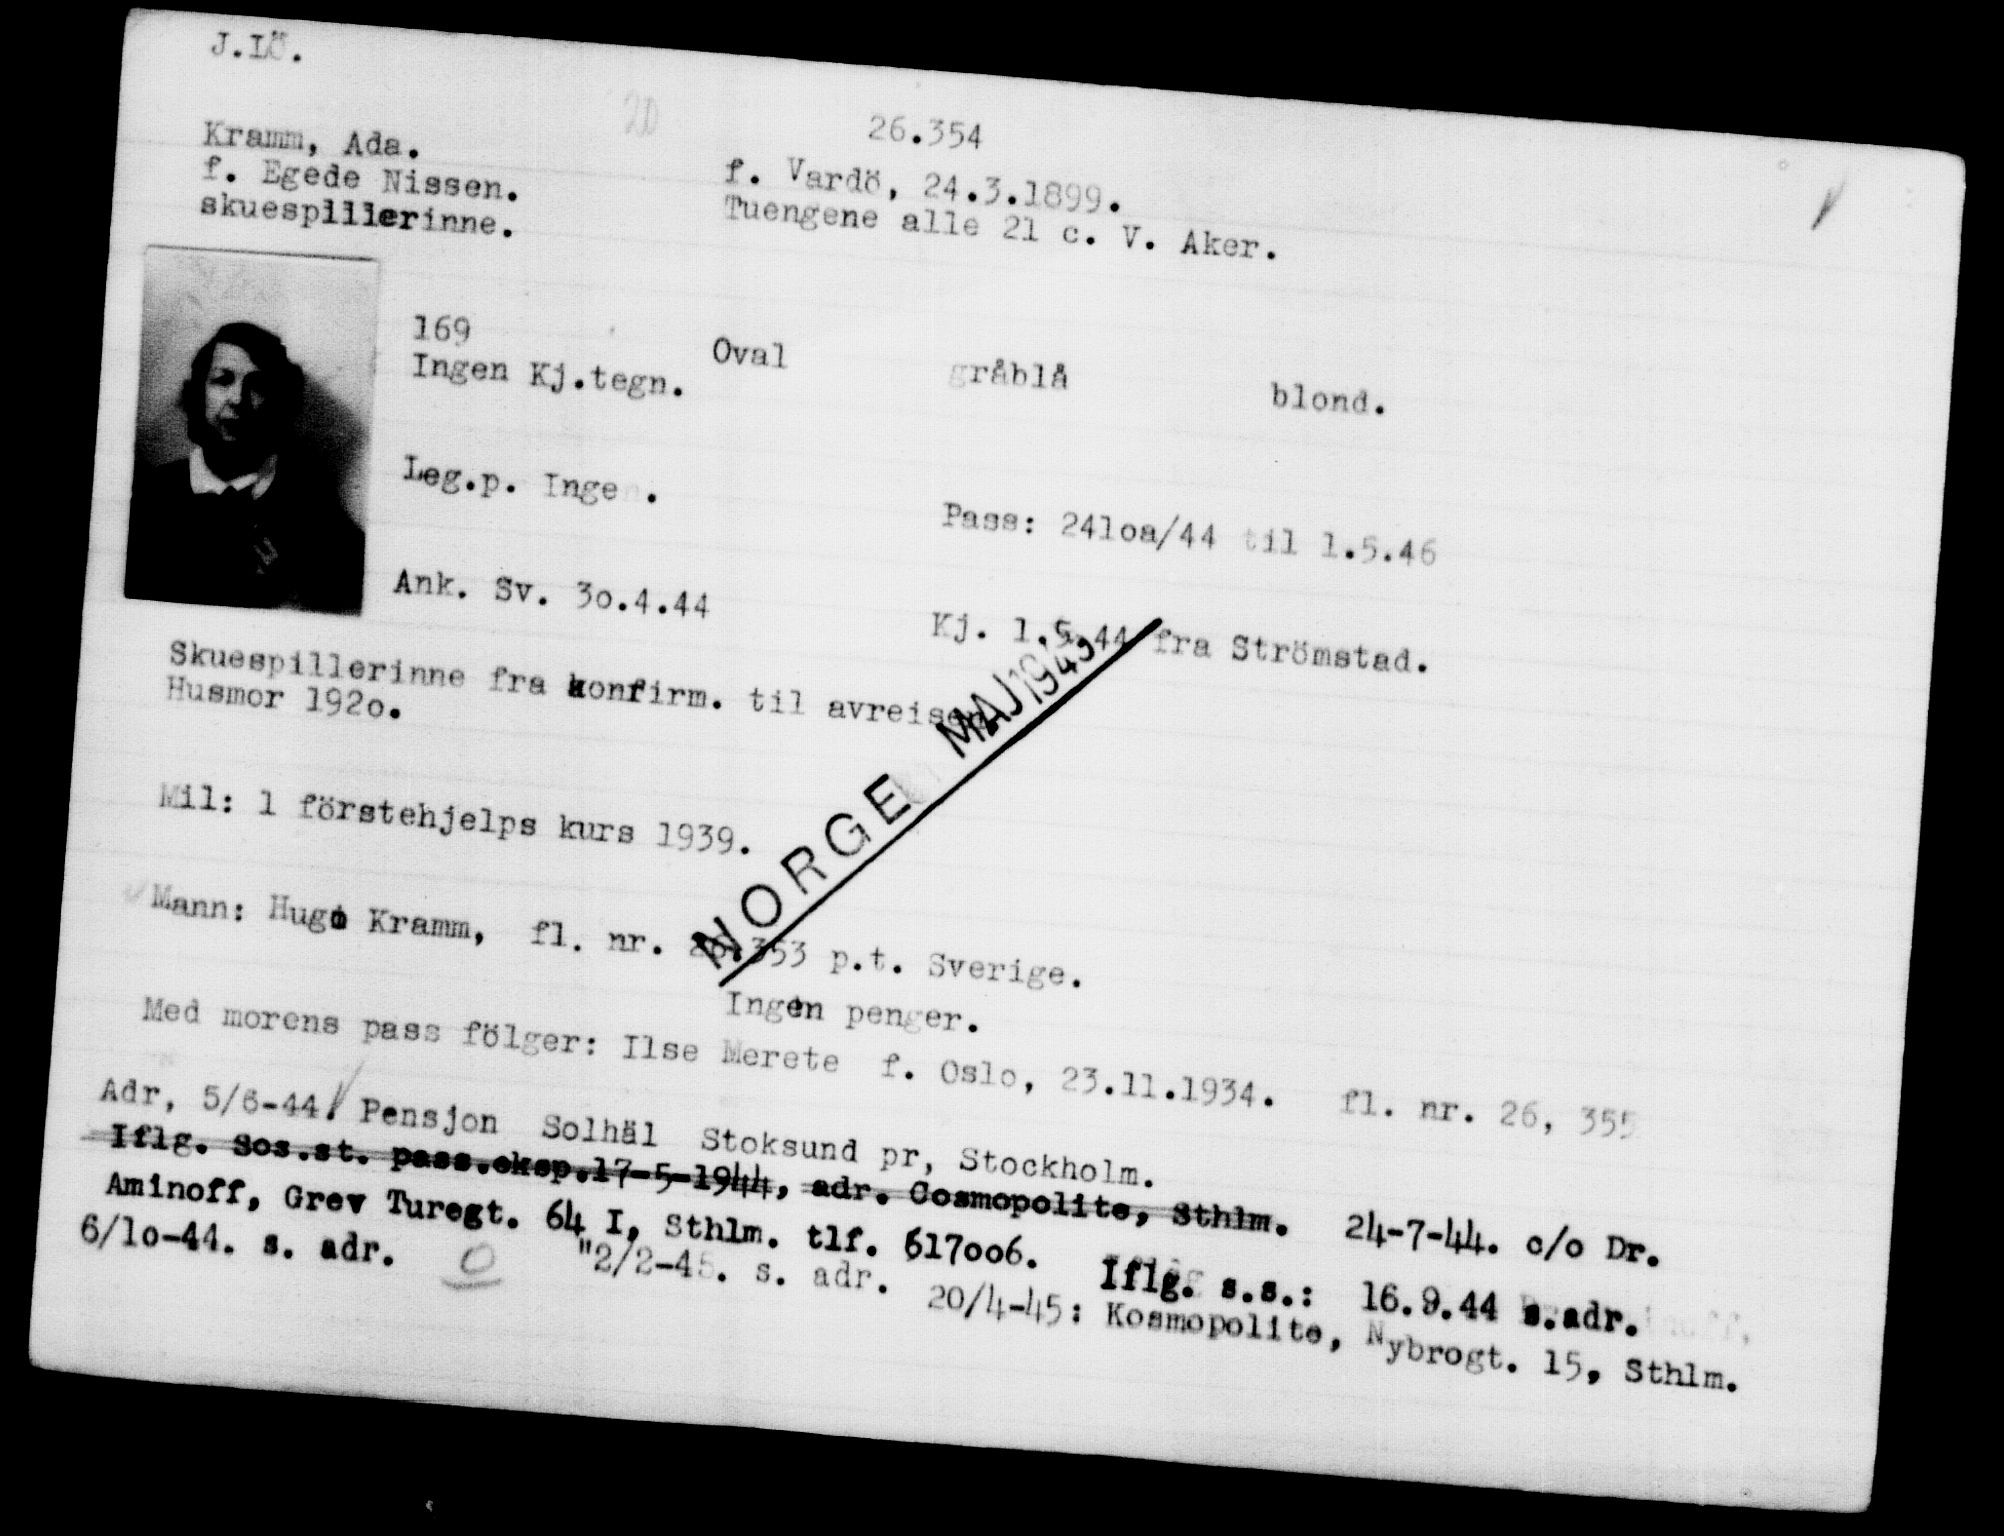 J.LÖ.
20
26.354
Kramm, Ada.
f. Egede Nissen.
skuespillerinne.
f. Vardö, 24.3.1899.
Tuengene alle 21 c. V. Aker.
169 Oval gråblå blond.
Ingen Kj.tegn.
Leg.p. Ingen.
Pass: 241oa/44 til 1.5.46
Ank. Sv. 3o.4.44
Kj. 1.5.44 fra Strömstad.
Skuespillerinne fra konfirm. til avreisen.
Husmor 192o.
NORGE MAJ 1945
Mil: 1 förstehjelps kurs 1939.
Mann: Hugo Kramm, fl. nr. 26.353 p.t. Sverige.
Ingen penger.
Med morens pass fölger: Ilse Merete f. Oslo, 23.11.1934. fl. nr. 26, 355
Adr, 5/6-44. Pensjon Solhäl Stoksund pr, Stockholm.
Iflg. Sos.st. pass.eksp.17-5-1944, adr. Cosmopolite, Sthlm. 24-7-44. c/o Dr.
Aminoff, Grev Turegt. 64 I, Sthlm. tlf. 617oo6. Iflg. s.s.: 16.9.44 s.adr.
6/1o-44. s. adr. O "2/2-45. s. adr. 20/4-45: Kosmopolite, Nybrogt. 15, Sthlm.